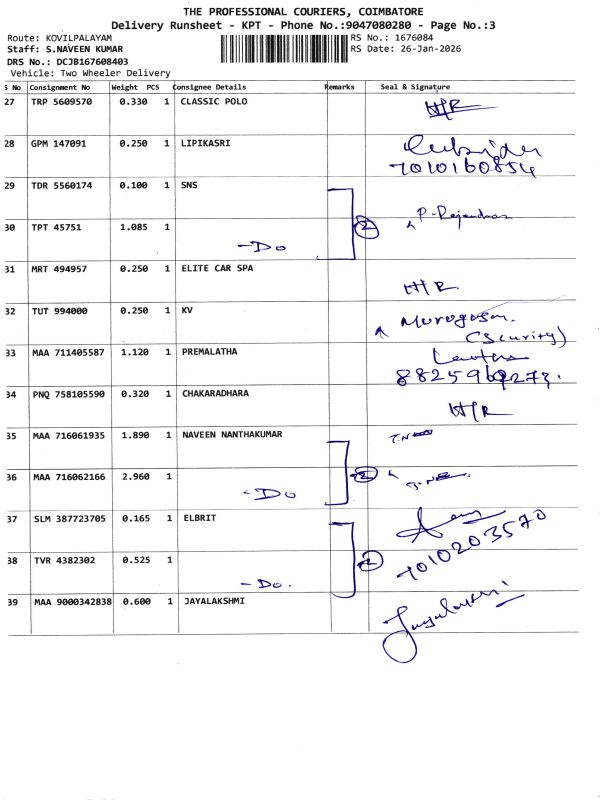 THE PROFESSIONAL COURIERS, COIMBATORE
Delivery Runsheet - KPT - Phone No.:9047080280 - Page No.:3
Route: KOVILPALAYAM
RS No.: 1676084
Staff: S.NAVEEN KUMAR
RS Date: 26-Jan-2026
DRS No.: DCJB167608403
Vehicle: Two Wheeler Delivery
S No Consignment No Weight PCS Consignee Details Remarks Seal & Signature
27 TRP 5609570 0.330 1 CLASSIC POLO H/R
28 GPM 147091 0.250 1 LIPIKASRI
7010160854
29 TDR 5560174 0.100 1 SNS
P-Rajendran
30 TPT 45751 1.085 1 2
-Do
31 MRT 494957 0.250 1 ELITE CAR SPA
H/R.
32 TUT 994000 0.250 1 KV
Murugasan.
(Scurity)
33 MAA 711405587 1.120 1 PREMALATHA
8825969273.
34 PNQ 758105590 0.320 1 CHAKARADHARA
H/R
35 MAA 716061935 1.890 1 NAVEEN NANTHAKUMAR
36 MAA 716062166 2.960 1 2
-Do
37 SLM 387723705 0.165 1 ELBRIT
7010203570
38 TVR 4382302 0.525 1 2
-Do.
39 MAA 9000342838 0.600 1 JAYALAKSHMI
Jayalakshmi